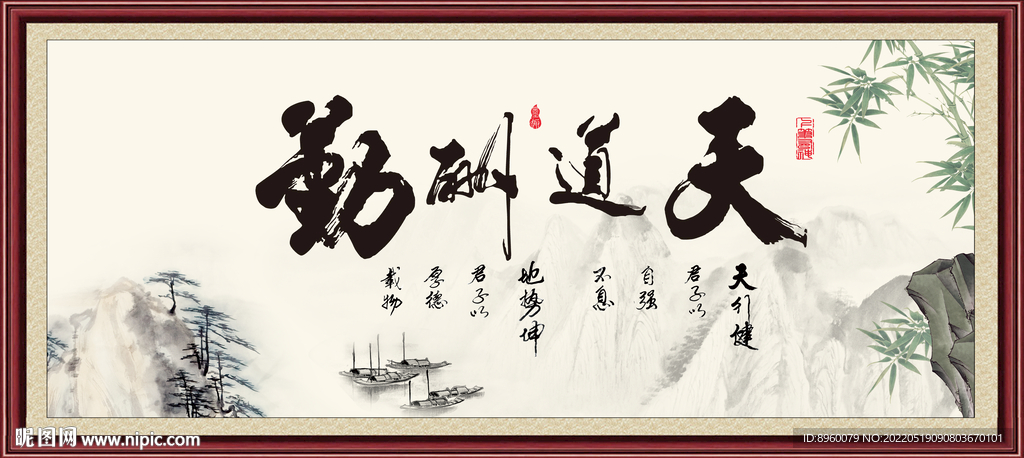 天道酬勤
天行健
君子以
自强
不息
地势坤
君子以
厚德
载物
昵图网 www.nipic.com
ID:8960079 NO:20220519090803670101